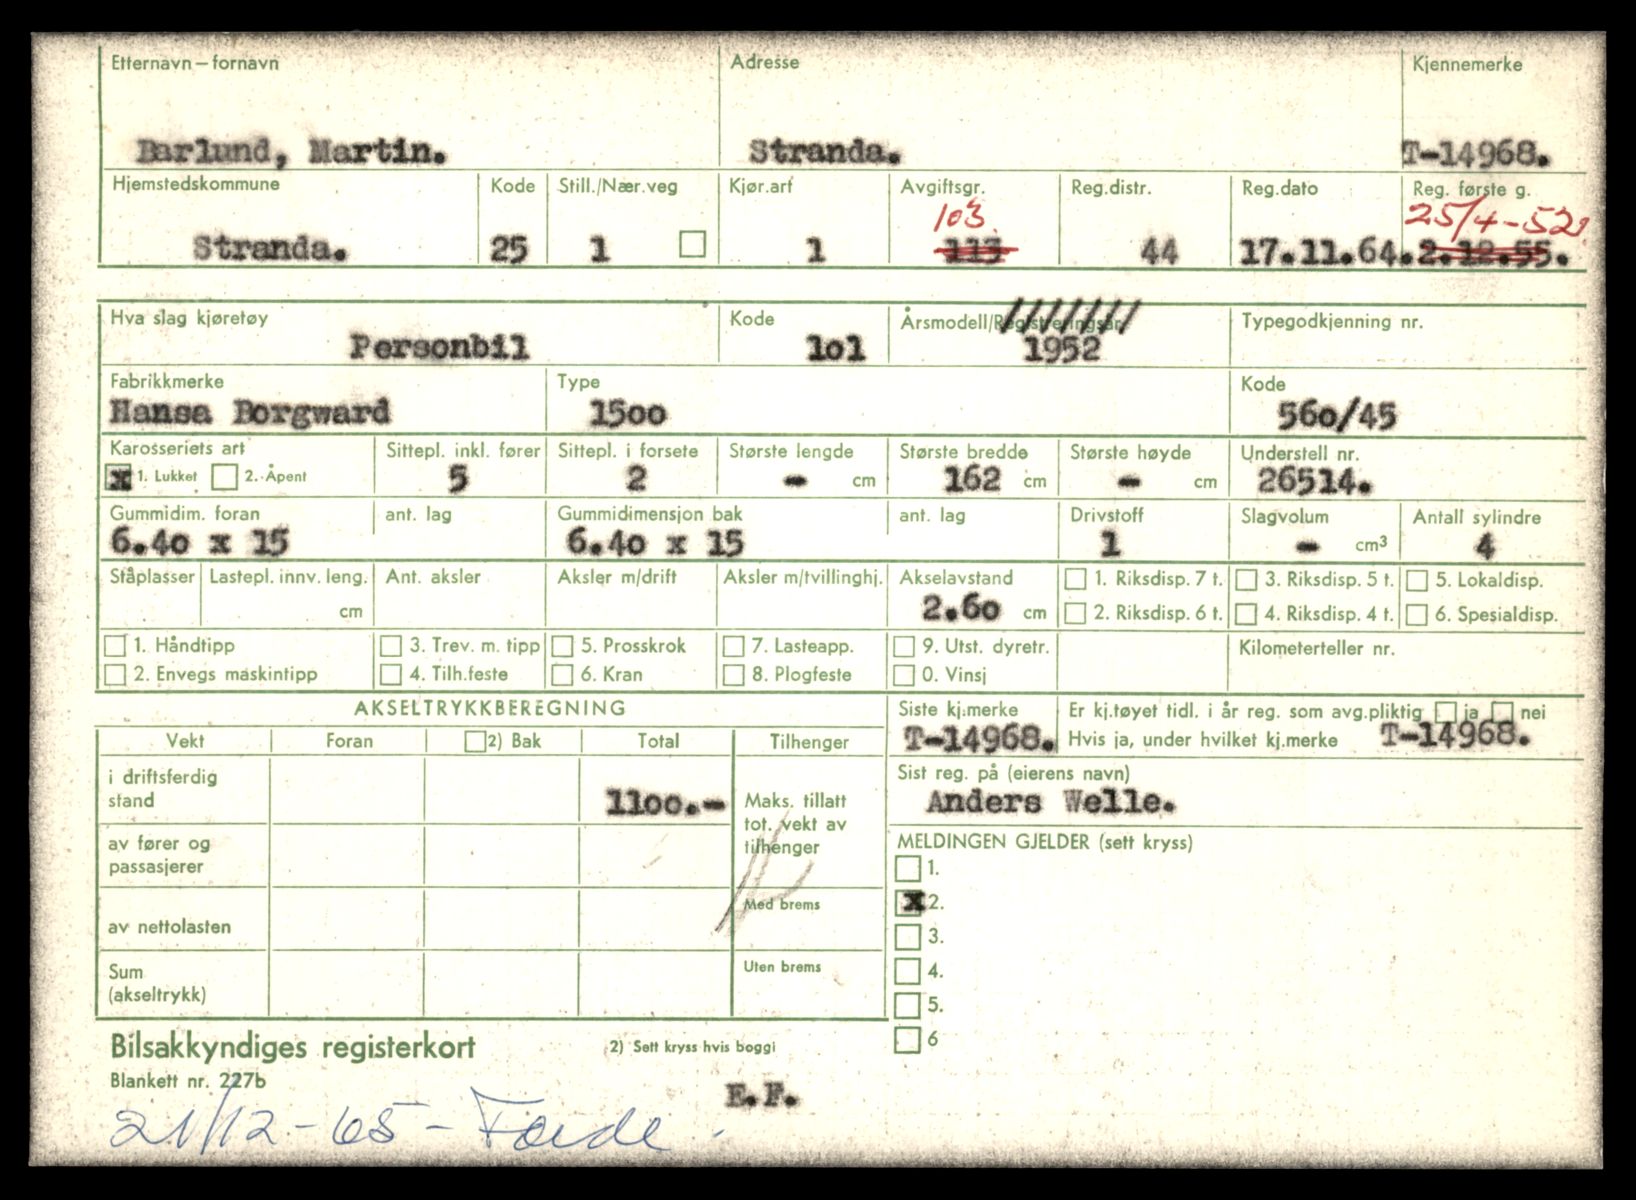 Etternavn – fornavn Adresse Kjennemerke
Barlund, Martin. Stranda. T-14968.
Hjemstedskommune Kode Still./Nær.veg Kjør.art Avgiftsgr. Reg.distr. Reg.dato Reg. første g.
103. 25/4-52.
Stranda. 25 1 1 113 44 17.11.64. 2.12.55.
Hva slag kjøretøy Kode Årsmodell/Registreringsår Typegodkjenning nr.
Personbil lol 1952
Fabrikkmerke Type Kode
Hansa Borgward 15oo 56o/45
Karosseriets art Sittepl. inkl. fører Sittepl. i forsete Største lengde Største bredde Største høyde Understell nr.
x 1. Lukket 2. Åpent 5 2 - cm 162 cm - cm 26514.
Gummidim. foran ant. lag Gummidimensjon bak ant. lag Drivstoff Slagvolum Antall sylindre
6.4o x 15 6.4o x 15 1 - cm³ 4
Ståplasser Lastepl. innv. leng. Ant. aksler Aksler m/drift Aksler m/tvillinghj. Akselavstand 1. Riksdisp. 7 t. 3. Riksdisp. 5 t. 5. Lokaldisp.
cm 2.6o cm 2. Riksdisp. 6 t. 4. Riksdisp. 4 t. 6. Spesialdisp.
1. Håndtipp 3. Trev. m. tipp 5. Prosskrok 7. Lasteapp. 9. Utst. dyretr. Kilometerteller nr.
2. Envegs maskintipp 4. Tilh.feste 6. Kran 8. Plogfeste 0. Vinsj
AKSELTRYKKBEREGNING
Vekt Foran 2) Bak Total Tilhenger
i driftsferdig stand 11oo.-
Maks. tillatt tot. vekt av tilhenger
av fører og passasjerer
Med brems
av nettolasten
Uten brems
Sum (akseltrykk)
Siste kj.merke Er kj.tøyet tidl. i år reg. som avg.pliktig ja nei
T-14968. Hvis ja, under hvilket kj.merke T-14968.
Sist reg. på (eierens navn)
Anders Welle.
MELDINGEN GJELDER (sett kryss)
1.
x 2.
3.
4.
5.
6
Bilsakkyndiges registerkort 2) Sett kryss hvis boggi
Blankett nr. 227b
E.F.
21/12-65 -